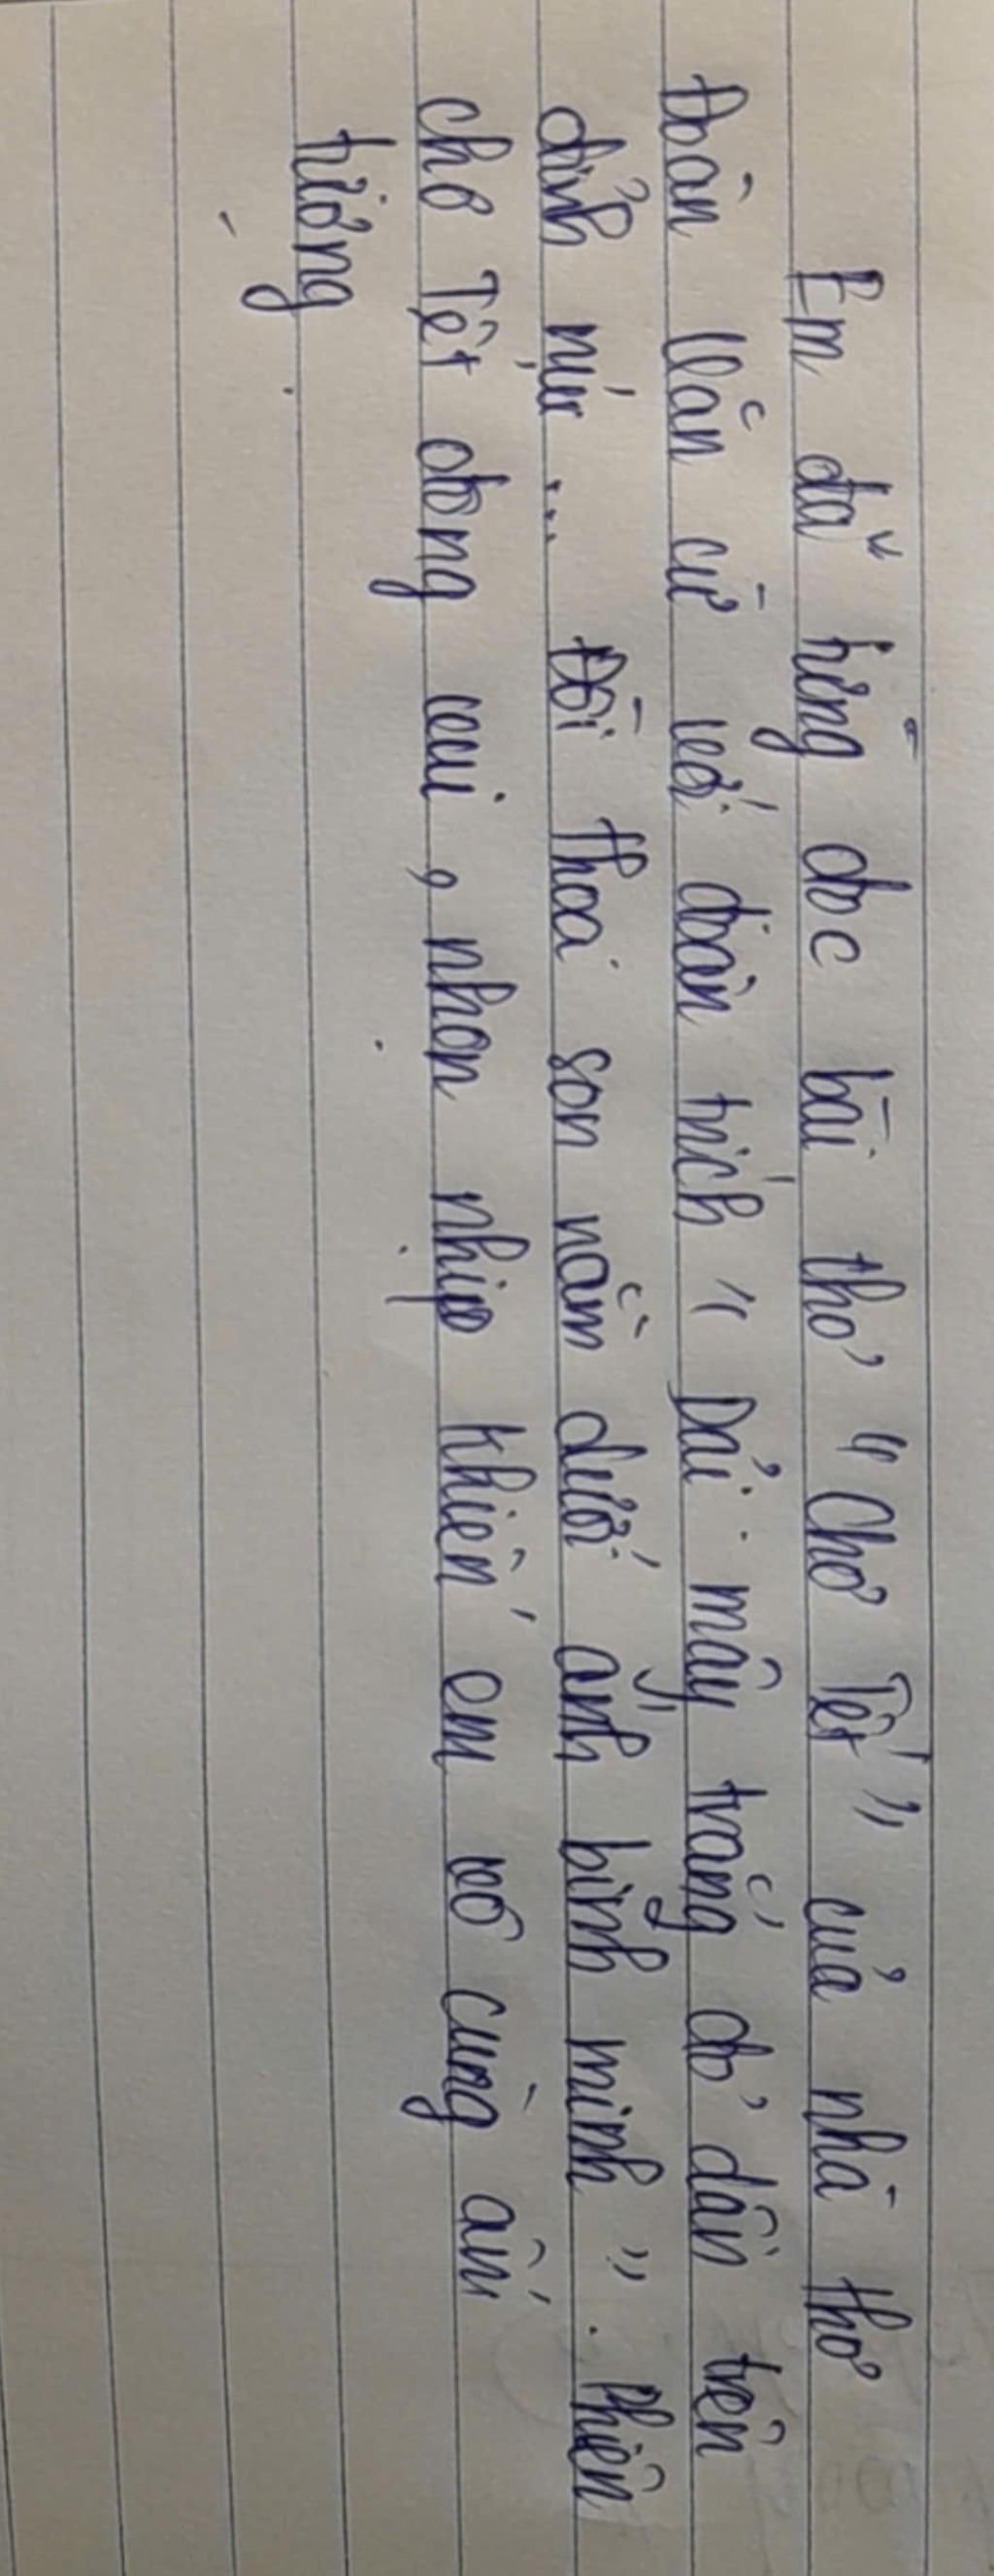 Em đã từng đọc bài thơ " Chợ Tết " của nhà thơ
Đoàn Văn cừ với đoàn trích " Dải mây trắng đỏ dần trên
đỉnh núi ... Đồi thoa son nằm dưới ánh bình minh " . Phiên
chợ Tết đông vui , nhộn nhịp khiến em vô cùng ấn
tượng